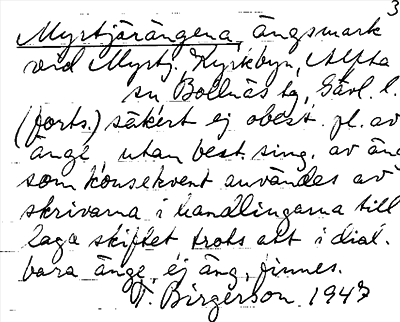 3
Myrtjärängena, ängsmark
vid Myrtj. Kyrkbyn, Alfta
sn Bollnäs tg, Gävl. l.
(forts.) säkert ej obest. pl. av
änge, utan best. sing. av äng
som konsekvent användes av
skrivarna i handlingarna till
laga skiftet trots att i dial.
bara änge, ej äng, finnes.
T. Birgerson 1947